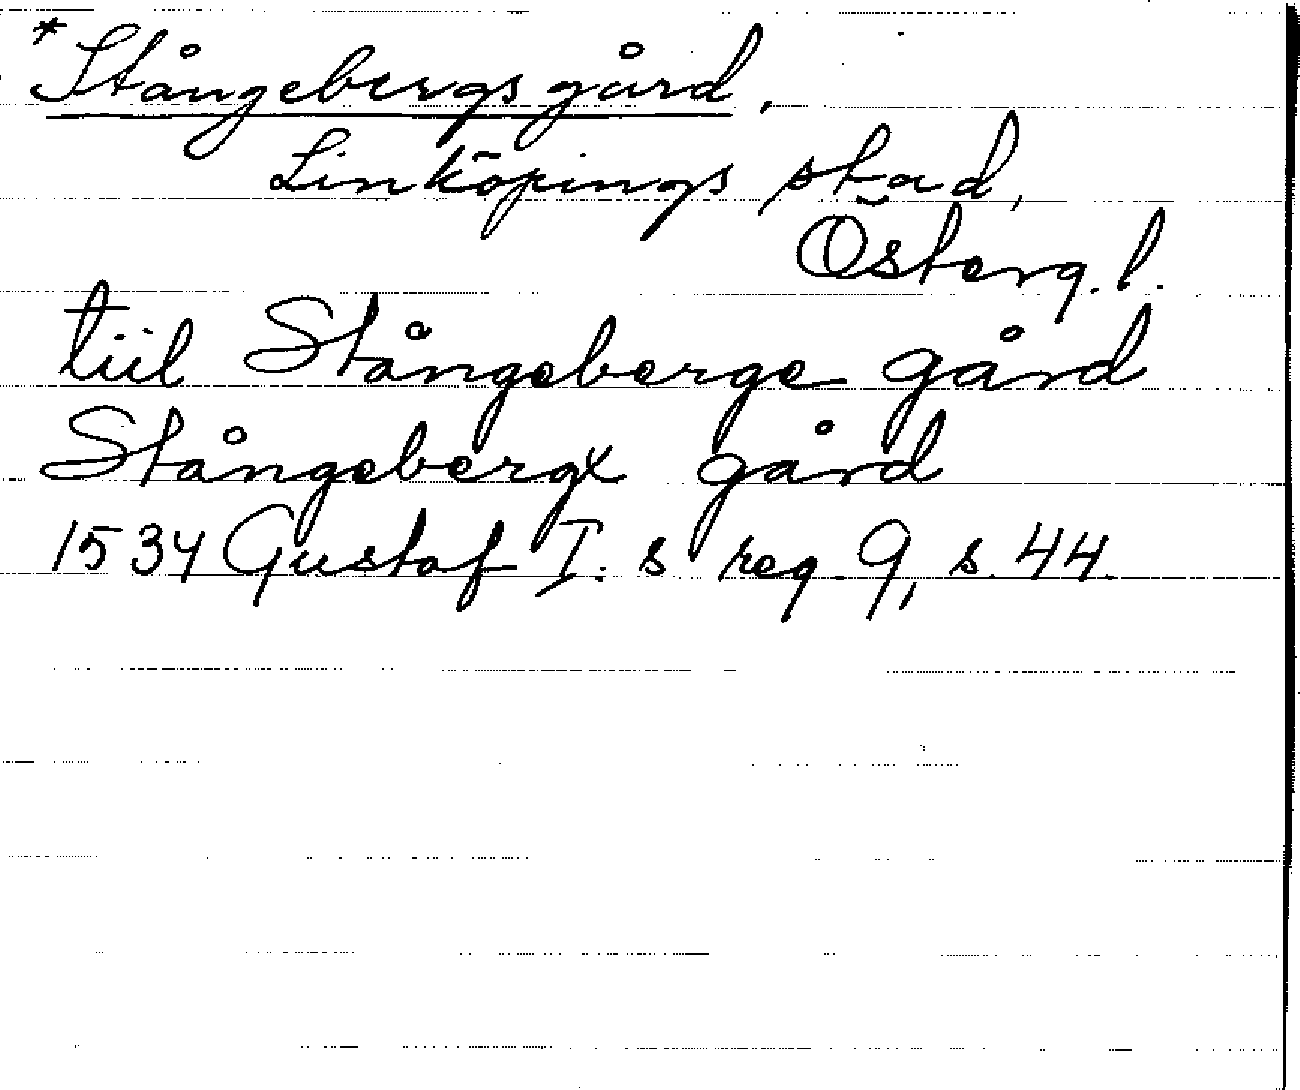 *Stångebergsgård,
Linköpings stad,
Österg. l.
tiil Stångeberge gård
Stångebergx gård
1534 Gustaf I:s reg. 9, s. 44.